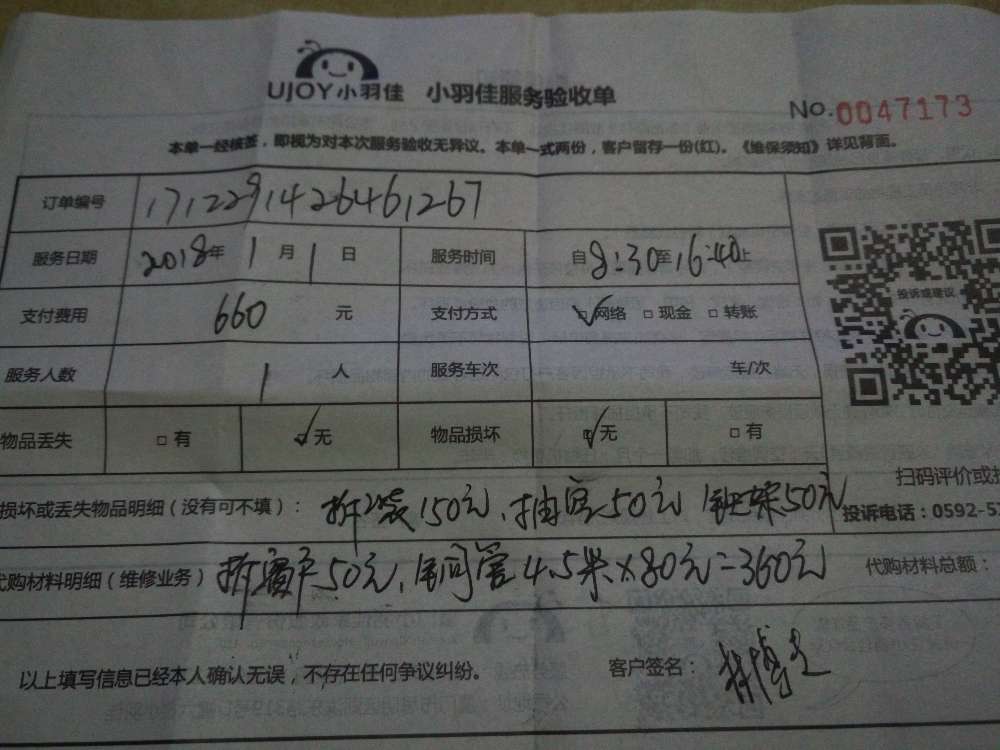 UJOY小羽佳 小羽佳服务验收单
No.0047173
本单一经核签，即视为对本次服务验收无异议。本单一式两份，客户留存一份(红)。《维保须知》详见背面。
订单编号 1712291426461267
服务日期 2018年 1月 1日 服务时间 自8:30至16:40止
支付费用 660 元 支付方式 ☑网络 □现金 □转账
投诉或建议
服务人数 1 人 服务车次 车/次
物品丢失 □有 ☑无 物品损坏 ☑无 □有
扫码评价或投
损坏或丢失物品明细（没有可不填）： 拆装150元、抽空50元 50元
投诉电话：0592-5
代购材料明细（维修业务） 拆 50元、铜管4.5米×80元=360元 代购材料总额：
以上填写信息已经本人确认无误，不存在任何争议纠纷。 客户签名： 林博